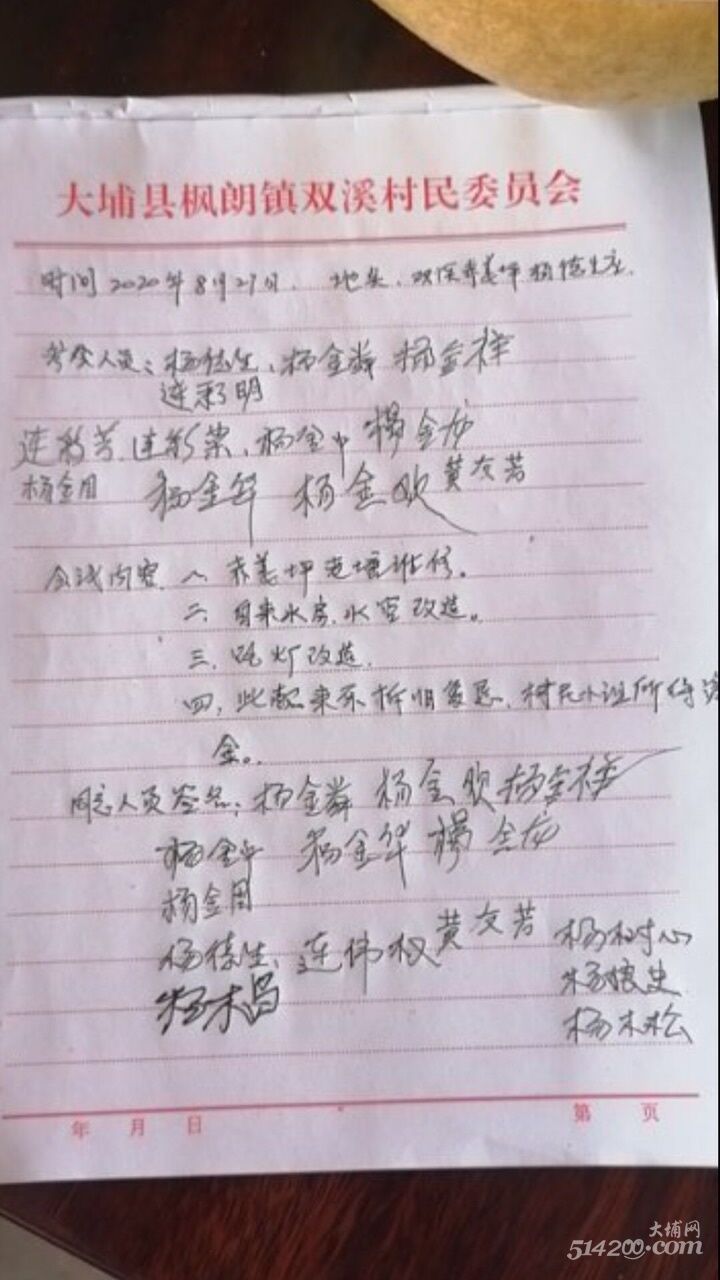 大埔县枫朗镇双溪村民委员会
时间 2020年8月27日. 地点、双溪赤姜坪杨德生家.
参会人员：杨德生、杨金粦 杨金祥
连彩明
连彩芳、连彩荣、杨金中 杨金龙
杨金用 杨金华 杨金欢 黄友芳
会议内容 一、赤姜坪 维修。
二、自来水房、水管改造。
三、路灯改造.
四、此款来 拆旧复垦、村民小组所得资
金。
同意人员签名：杨金粦 杨金欢 杨金祥
杨金中 杨金华 杨金龙
杨金用
杨德生、连伟权 黄友芳 杨树心
杨木昌 杨 史
杨木松
年 月 日 第 页
大埔网
514200.com